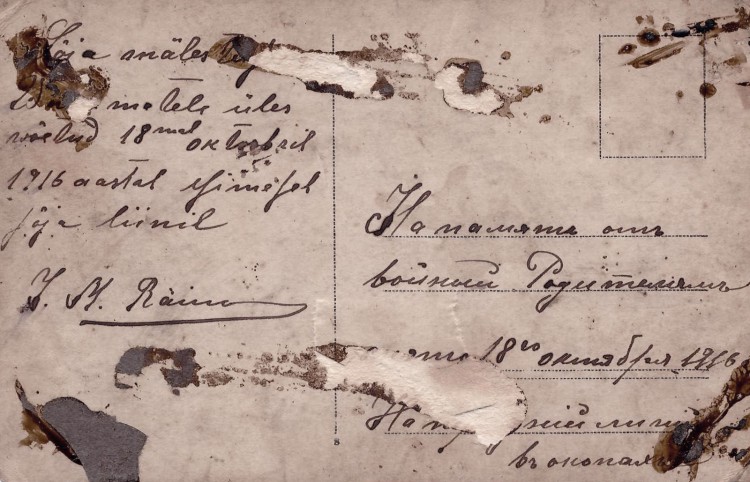 Sõja mälest
matele üles
võetud 18mal oktoobril
1916 aastal esimesel
sõja liinil
J. M. Räim
На память отъ
войный Родителямъ
18го октября 1916
На
въ окопахъ
8